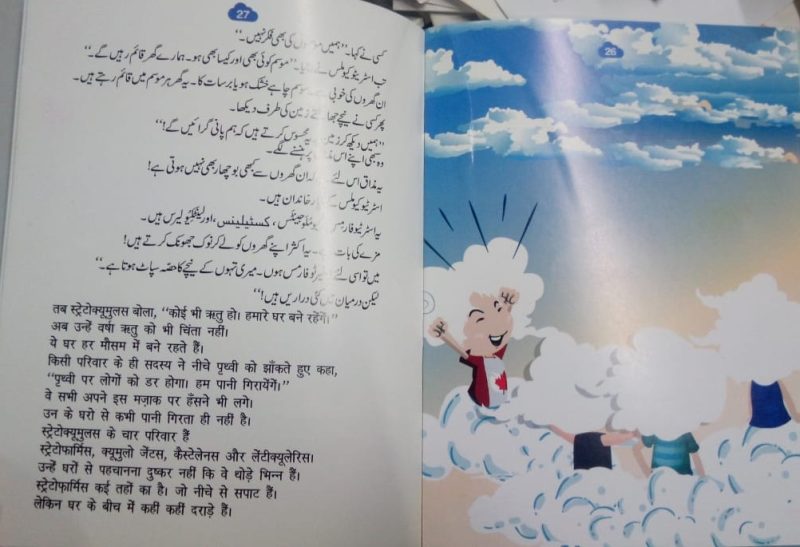 27
کسی نے کہا۔ ”ہمیں موسموں کی بھی فکر نہیں۔“
تب اسٹریٹوکیومُلس نے ”موسم کوئی بھی اور کیسا بھی ہو۔ ہمارے گھر قائم رہیں گے۔“
ان گھروں کی خوبی موسم چاہے خشک ہو یا برسات کا۔ یہ گھر ہر موسم میں قائم رہتے ہیں۔
پھر کسی نے نیچے زمین کی طرف دیکھا۔
”ہمیں دیکھ کر زمین محسوس کرتے ہیں کہ ہم پانی گرائیں گے!“
وہ سبھی اپنے اس پر ہنسنے لگے۔
یہ مذاق اس لئے ان گھروں سے کبھی بوچھار بھی نہیں ہوتی ہے!
اسٹریٹوکیومُلس کے خاندان ہیں۔
یہ اسٹریٹوفارمس، کسٹیلینس، اور لینٹیکیولیرس ہیں۔
مزے کی بات یہ اکثر اپنے گھروں کو لے کر نوک جھونک کرتے ہیں!
میں تو اسی لئے فارمس ہوں۔ میری تہوں کے نیچے کا حصّہ سپاٹ ہوتا ہے۔“
لیکن درمیان میں کئی دراریں ہیں!“
तब स्ट्रेटोक्यूमुलस बोला, “कोई भी ऋतु हो। हमारे घर बने रहेंगे।”
अब उन्हें वर्षा ऋतु को भी चिंता नहीं।
ये घर हर मौसम में बने रहते हैं।
किसी परिवार के ही सदस्य ने नीचे पृथ्वी को झाँकते हुए कहा,
“पृथ्वी पर लोगों को डर होगा। हम पानी गिरायेंगें।”
वे सभी अपने इस मज़ाक पर हँसने भी लगे।
उन के घरो से कभी पानी गिरता ही नहीं है।
स्ट्रेटोक्यूमुलस के चार परिवार हैं
स्ट्रेटोफार्मिस, क्यूमुलो जेंटस, कैस्टेलेनस और लेंटीक्यूलेरिस।
उन्हें घरों से पहचानना दुष्कर नही कि वे थोड़े भिन्न हैं।
स्ट्रेटोफार्मिस कई तहों का है। जो नीचे से सपाट हैं।
लेकिन घर के बीच में कहीं कहीं दराड़े हैं।
26